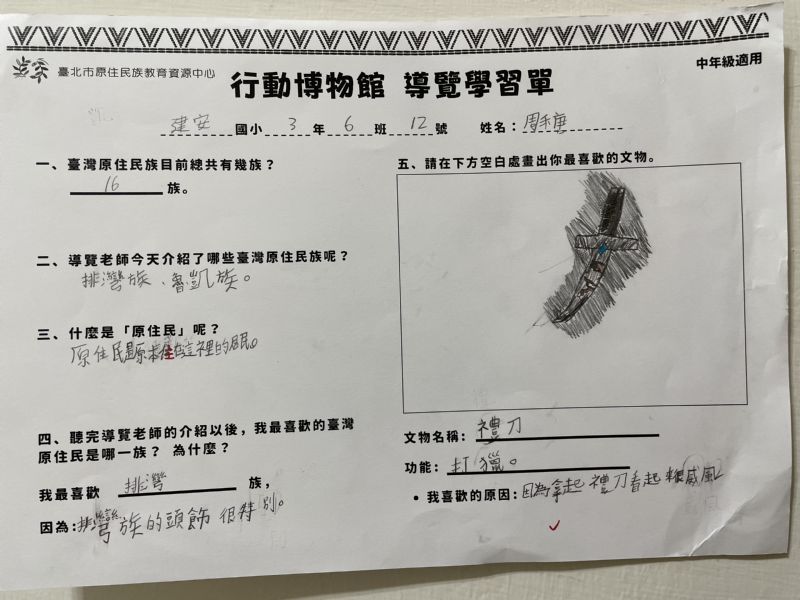 臺北市原住民族教育資源中心
行動博物館 導覽學習單
中年級適用
建安國小 3 年 6 班 12 號 姓名：周禾庚
一、臺灣原住民族目前總共有幾族？
16 族。
二、導覽老師今天介紹了哪些臺灣原住民族呢？
排灣族、魯凱族。
三、什麼是「原住民」呢？
原住民是原本住在這裡的居民。
四、聽完導覽老師的介紹以後，我最喜歡的臺灣
原住民是哪一族？ 為什麼？
我最喜歡 排灣 族，
因為：排灣族的頭飾很特別。
五、請在下方空白處畫出你最喜歡的文物。
文物名稱：禮刀
功能：打獵。
• 我喜歡的原因：因為拿起禮刀看起來很威風